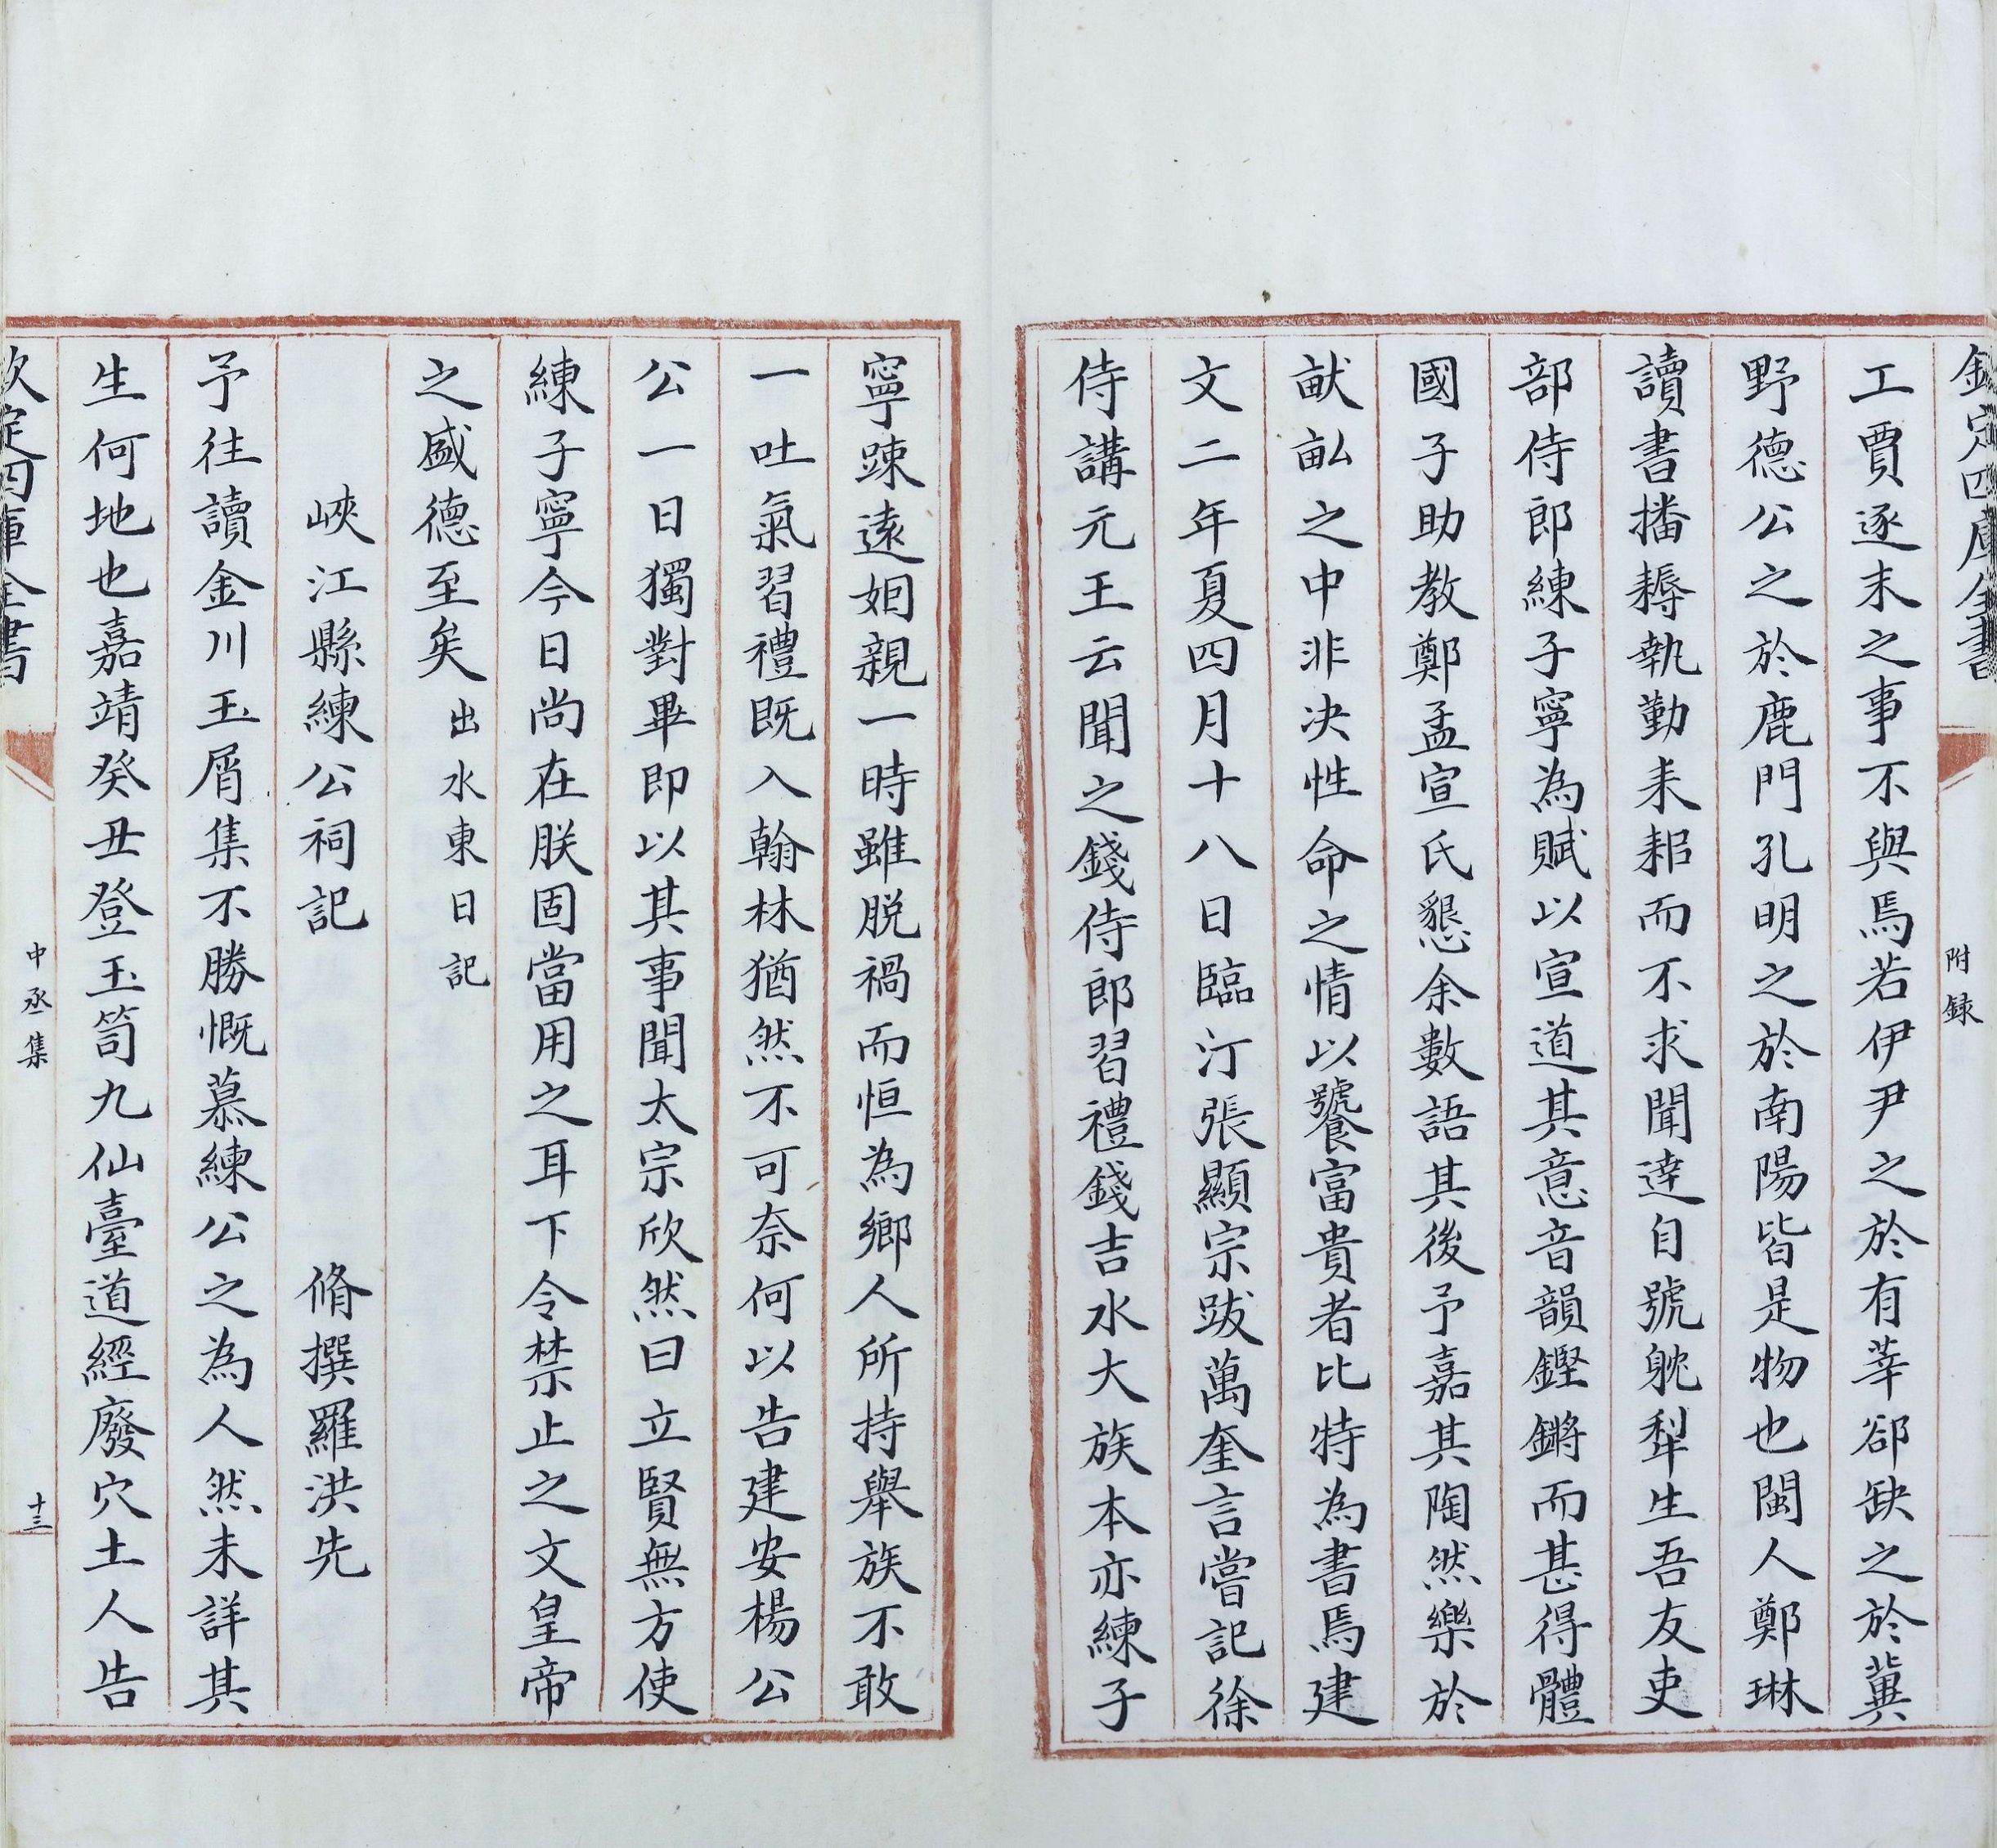 欽定四庫全書
附録
工賈逐末之事不與焉若伊尹之於有莘郤缺之於冀
野德公之於鹿門孔明之於南陽皆是物也閩人鄭琳
讀書播耨執勤耒耜而不求聞達自號躭犁生吾友吏
部侍郎練子寧為賦以宣道其意音韻鏗鏘而甚得體
國子助教鄭孟宣氏懇余數語其後予嘉其陶然樂於
猷畆之中非决性命之情以饕富貴者比特為書焉建
文二年夏四月十八日臨汀張顯宗跋萬奎言嘗記徐
侍講元玉云聞之錢侍郎習禮錢吉水大族本亦練子
寧踈逺姻親一時雖脱禍而恒為鄉人所持舉族不敢
一吐氣習禮既入翰林猶然不可奈何以告建安楊公
公一日獨對畢即以其事聞太宗欣然曰立賢無方使
練子寧今日尚在朕固當用之耳下令禁止之文皇帝
之盛德至矣出水東日記
峽江縣練公祠記 脩撰羅洪先
予往讀金川玉屑集不勝慨慕練公之為人然未詳其
生何地也嘉靖癸丑登玉笥九仙臺道經廢穴土人告
欽定四庫全書
中丞集
十三